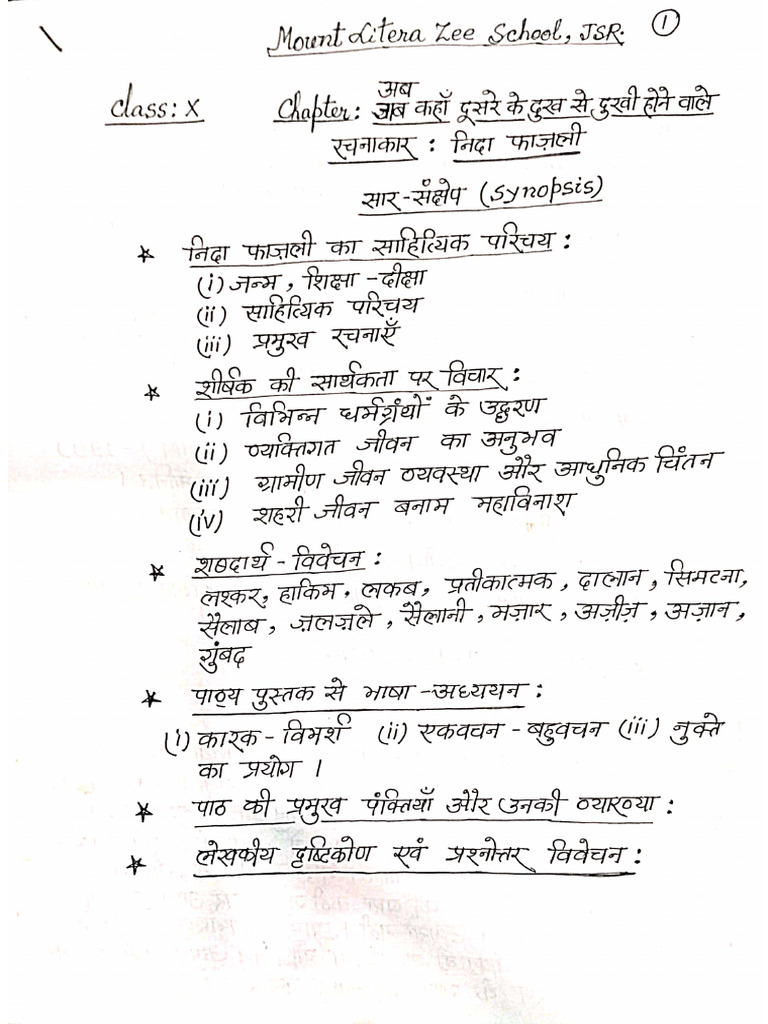 Mount Litera Zee School, JSR. 1
अब
Class: X Chapter: अब कहाँ दूसरे के दुख से दुखी होने वाले
रचनाकार : निदा फाज़ली
सार-संक्षेप (Synopsis)
* निदा फाज़ली का साहित्यिक परिचय :
(i) जन्म, शिक्षा-दीक्षा
(ii) साहित्यिक परिचय
(iii) प्रमुख रचनाएँ
* शीर्षक की सार्थकता पर विचार :
(i) विभिन्न धर्मग्रंथों के उद्धरण
(ii) व्यक्तिगत जीवन का अनुभव
(iii) ग्रामीण जीवन व्यवस्था और आधुनिक चिंतन
(iv) शहरी जीवन बनाम महाविनाश
* शब्दार्थ - विवेचन :
लश्कर, हाकिम, लकब, प्रतीकात्मक, दालान, सिमटना,
सैलाब, ज़लज़ले, सैलानी, मज़ार, अज़ीज़, अज़ान,
गुंबद
* पाठ्य पुस्तक से भाषा-अध्ययन :
(i) कारक - विमर्श (ii) एकवचन - बहुवचन (iii) नुक्ते
का प्रयोग ।
* पाठ की प्रमुख पंक्तियाँ और उनकी व्याख्या :
* लेखकीय दृष्टिकोण एवं प्रश्नोत्तर विवेचन :